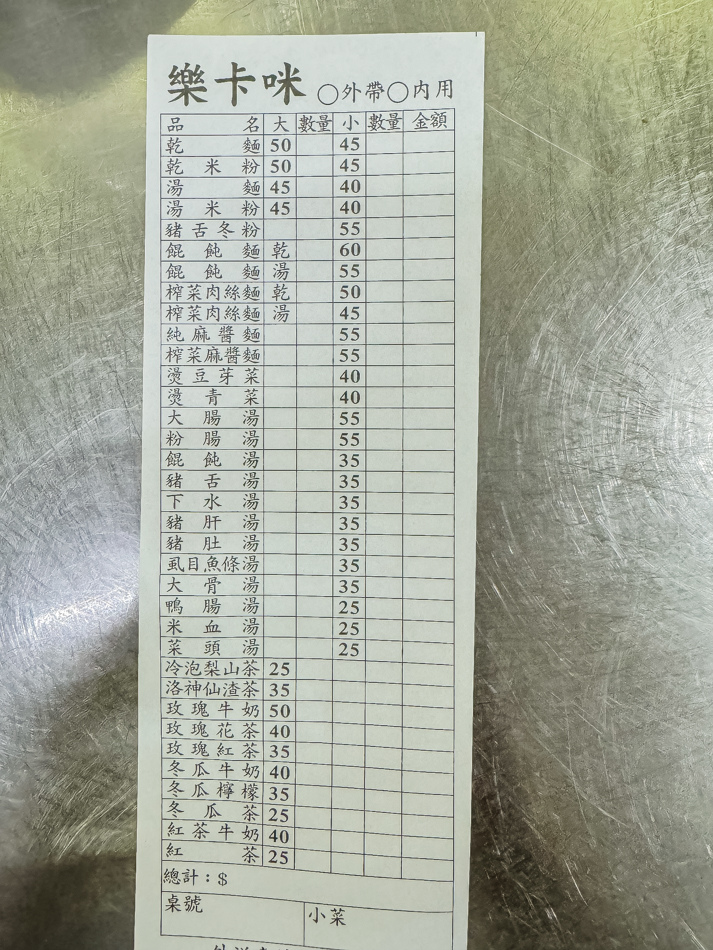 樂卡咪 ○外帶○內用
品名 大 數量 小 數量 金額
乾麵 50 45
乾米粉 50 45
湯麵 45 40
湯米粉 45 40
豬舌冬粉 55
餛飩麵 乾 60
餛飩麵 湯 55
榨菜肉絲麵 乾 50
榨菜肉絲麵 湯 45
純麻醬麵 55
榨菜麻醬麵 55
燙豆芽菜 40
燙青菜 40
大腸湯 55
粉腸湯 55
餛飩湯 35
豬舌湯 35
下水湯 35
豬肝湯 35
豬肚湯 35
虱目魚條湯 35
大骨湯 35
鴨腸湯 25
米血湯 25
菜頭湯 25
冷泡梨山茶 25
洛神仙渣茶 35
玫瑰牛奶 50
玫瑰花茶 40
玫瑰紅茶 35
冬瓜牛奶 40
冬瓜檸檬 35
冬瓜茶 25
紅茶牛奶 40
紅茶 25
總計：$
桌號 小菜